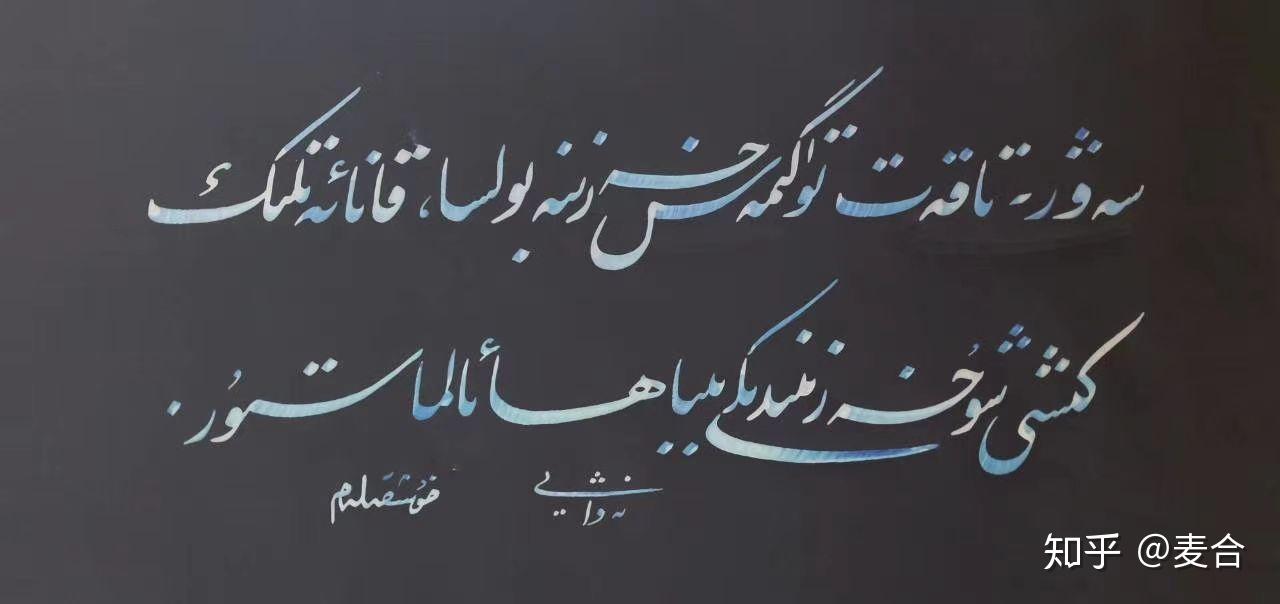 سەۋر - تاقەت تۈگىمەس خەزىنە بولسا، قانائەتلىك
كىشى شۇ خەزىنىدىكى بىباھا ئالماستۇر.
نەۋائىي
خۇشقەلەم
知乎 @麦合